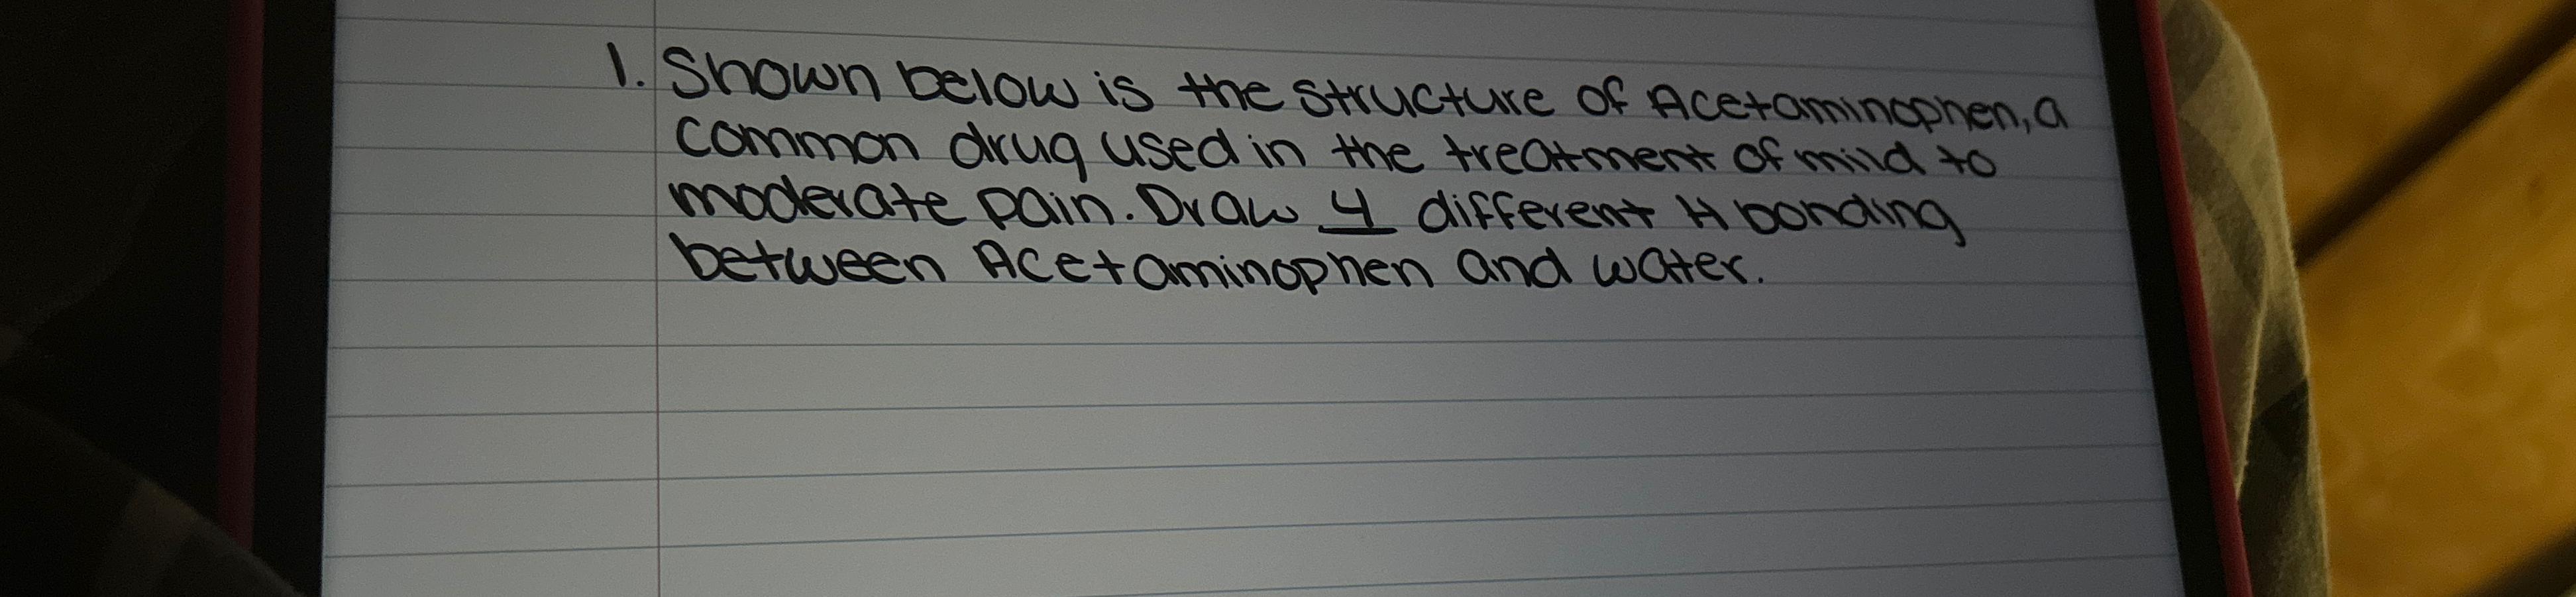 1. Shown below is the structure of Acetaminophen, a
common drug used in the treatment of mild to
moderate pain. Draw 4 different H bonding
between Acetaminophen and water.